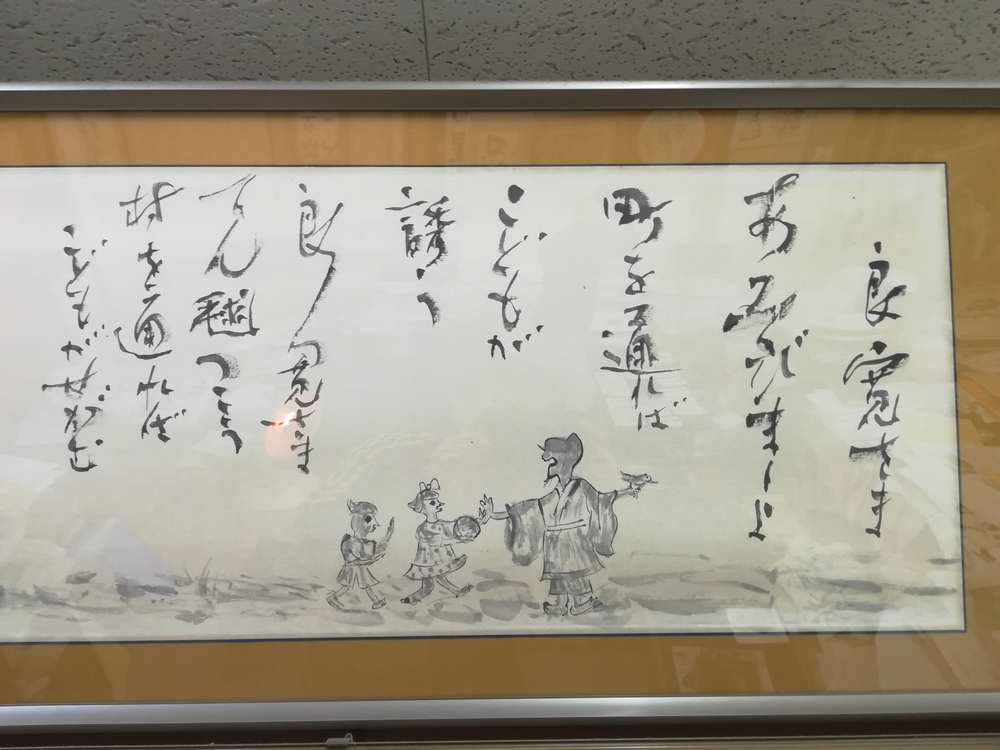 良寛さま
あそびましょ
町を通れば
こどもが
誘う
良寛さま
てん毬つこう
村を通れば
こどもがせがむ